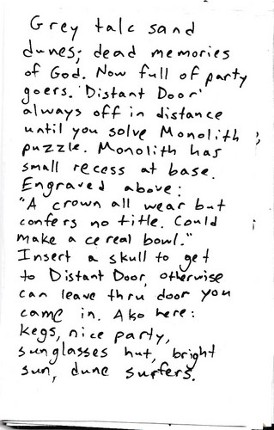 Grey talc sand
dunes; dead memories
of God. Now full of party
goers. 'Distant Door'
always off in distance
until you solve Monolith
puzzle. Monolith has
small recess at base.
Engraved above:
"A crown all wear but
confers no title. Could
make a cereal bowl."
Insert a skull to get
to Distant Door, otherwise
can leave thru door you
came in. Also here:
kegs, nice party,
sunglasses hut, bright
sun, dune surfers.